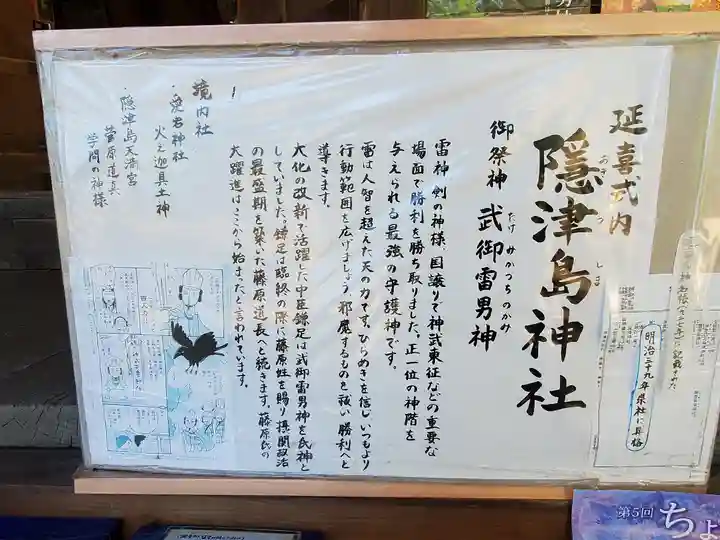 延喜式内
隠津島神社
おきつしま
御祭神 武御雷男神
たけみかつちのかみ
雷神、剣の神様、国譲りで神武東征などの重要な
場面で勝利を勝ち取りました、正一位の神階を
与えられる最強の守護神です。
雷は人智を超えた天の力です。ひらめきを信じ、いつもより
行動範囲を広げましょう。邪魔するものを祓い勝利へと
導きます。
大化の改新で活躍した中臣鎌足は武御雷男神を氏神と
していました。鎌足は臨終の際に藤原姓を賜り摂関政治
の最盛期を築いた藤原道長へと続きます。藤原氏の
大躍進はここから始まったと言われています。
境内社
・愛宕神社
火之迦具土神
・隠津島天満宮
菅原道真
学問の神様
神名帳(九二七年)に記載された
明治三十九年県社に昇格
第5回
ちょ